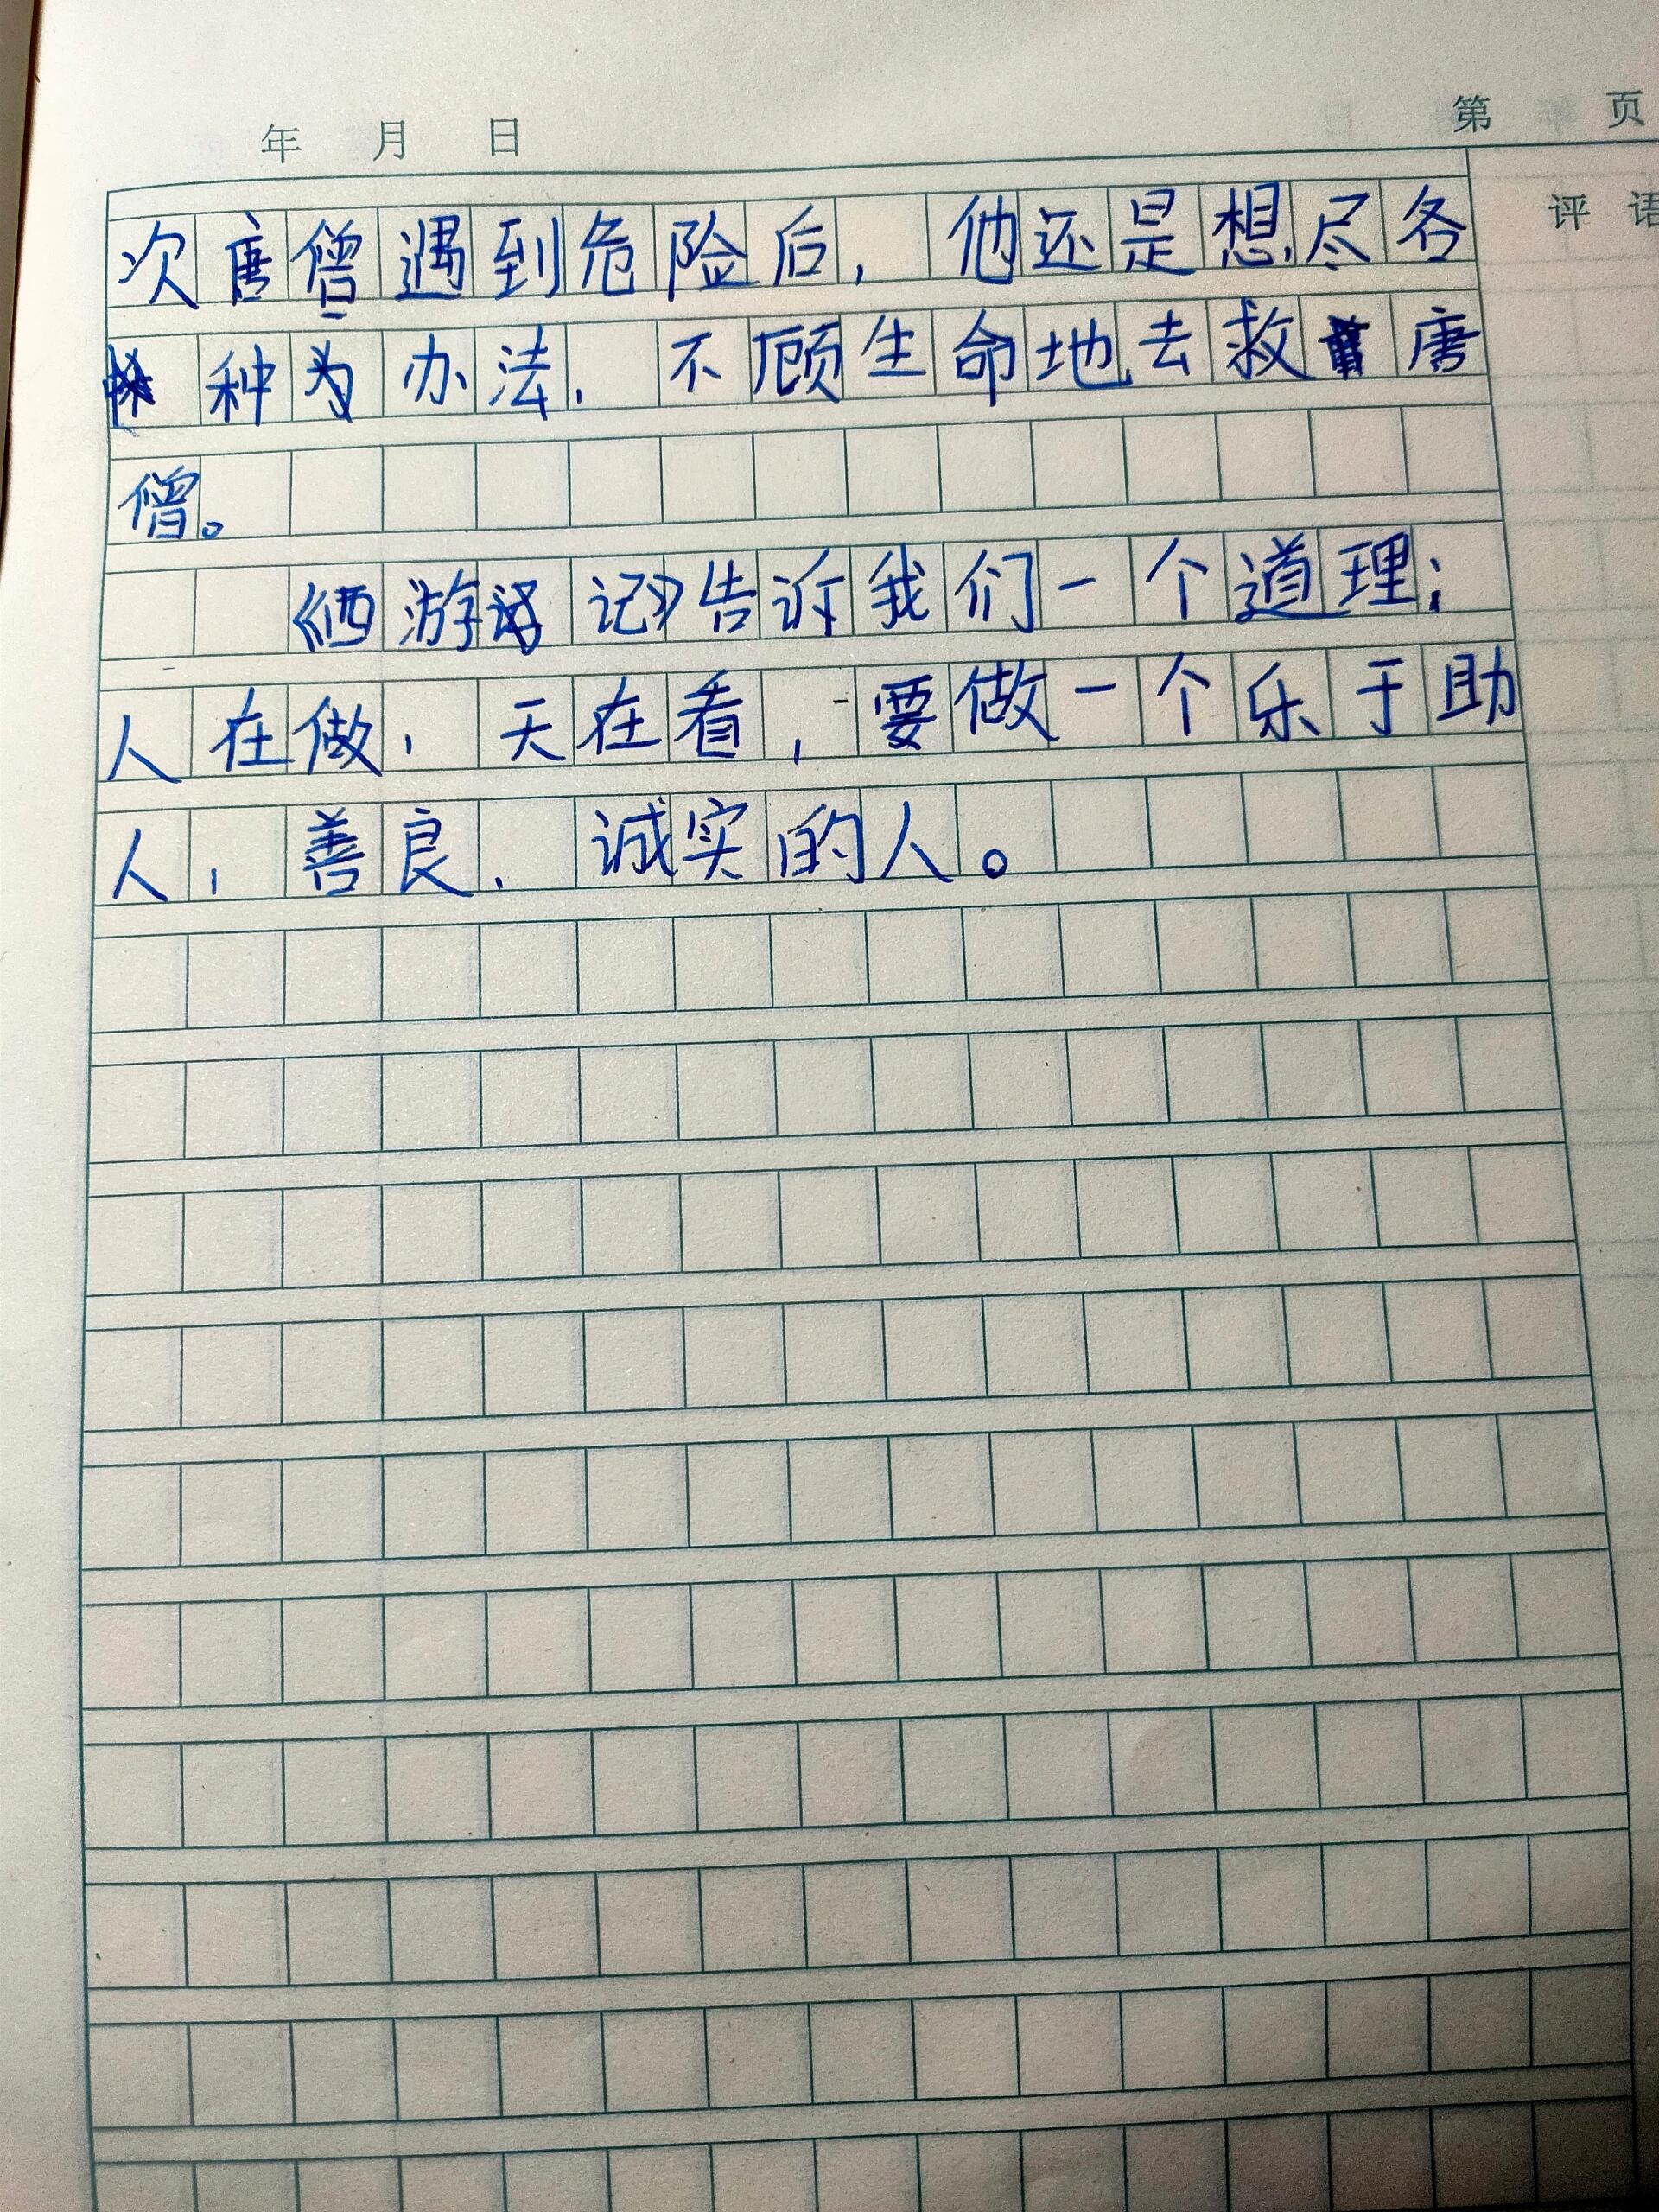 年 月 日
第 页
评语
次唐僧遇到危险后，他还是想尽各
种为办法，不顾生命地去救唐
僧。
《西游记》告诉我们一个道理：
人在做，天在看，要做一个乐于助
人，善良，诚实的人。